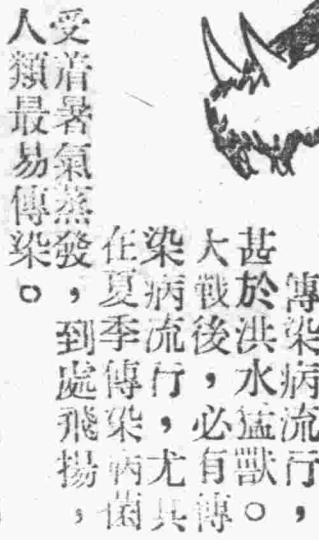 傳染病流行，
甚於洪水猛獸。
大戰後，必有傳
染病流行，尤其
在夏季傳染病菌
受着暑氣蒸發，到處飛揚，
人類最易傳染。